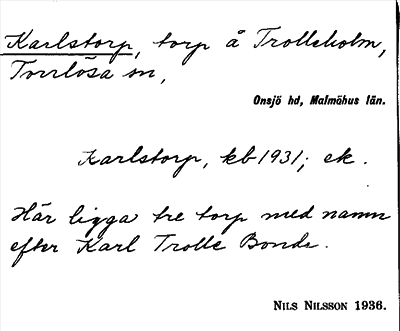 Karlstorp, torp å Trolleholm,
Torrlösa sn,
Onsjö hd, Malmöhus län.
Karlstorp, kb 1931; ek.
Här ligga tre torp med namn
efter Karl Trolle Bonde.
NILS NILSSON 1936.